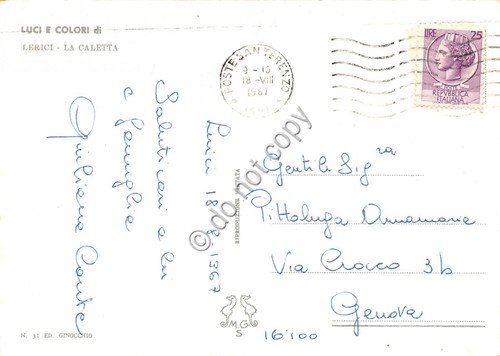 LUCI E COLORI di
LERICI - LA CALETTA
POSTE SAN TERENZO
9 - 10
18 - VIII
1967
LIRE 25
POSTE
REPVBBLICA
ITALIANA
Lerici 18 8 1967
Saluti cari a lei
e famiglia
Giuliana Conte
Gentile Sig.ra
Pittaluga Annamaria
Via Crocco 3b
Genova
16100
RIPRODUZIONE VIETATA
MG
S
N. 31 ED. GINOCCHIO
do not copy